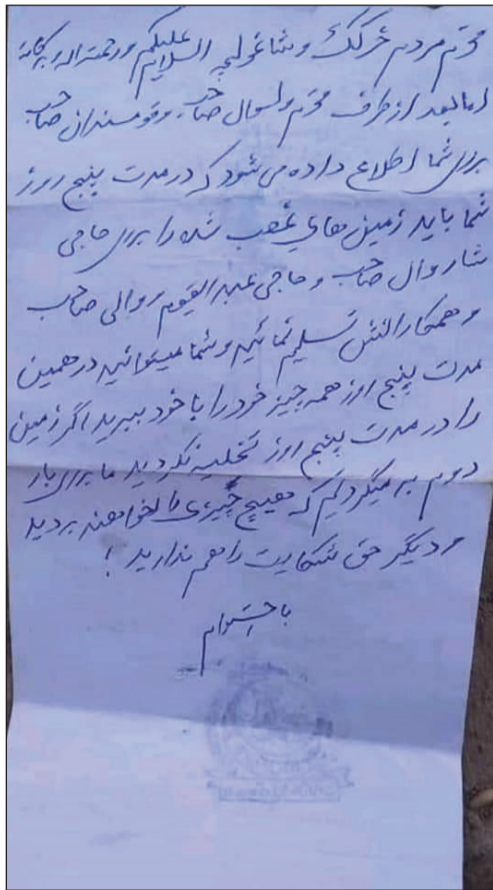 محترم مردم خرکک و شاغولچه السلام علیکم ورحمته الله وبرکاته
اما بعد از طرف محترم ولسوال صاحب و قومندان صاحب
برای شما اطلاع داده می شود که در مدت پنج روز
شما باید زمین های غصب شده را برای حاجی
شاروال صاحب و حاجی عبدالقیوم روالی صاحب
و همکارانش تسلیم نمائید و شما میتوانید در همین
مدت پنج روز همه چیز خود را با خود ببرید اگر زمین
را در مدت پنج روز تخلیه نکردید ما برای بار
دوم بر میگردیم که هیچ چیزی را نخواهند بردید
و دیگر حق شکایت را هم ندارید !
با احترام